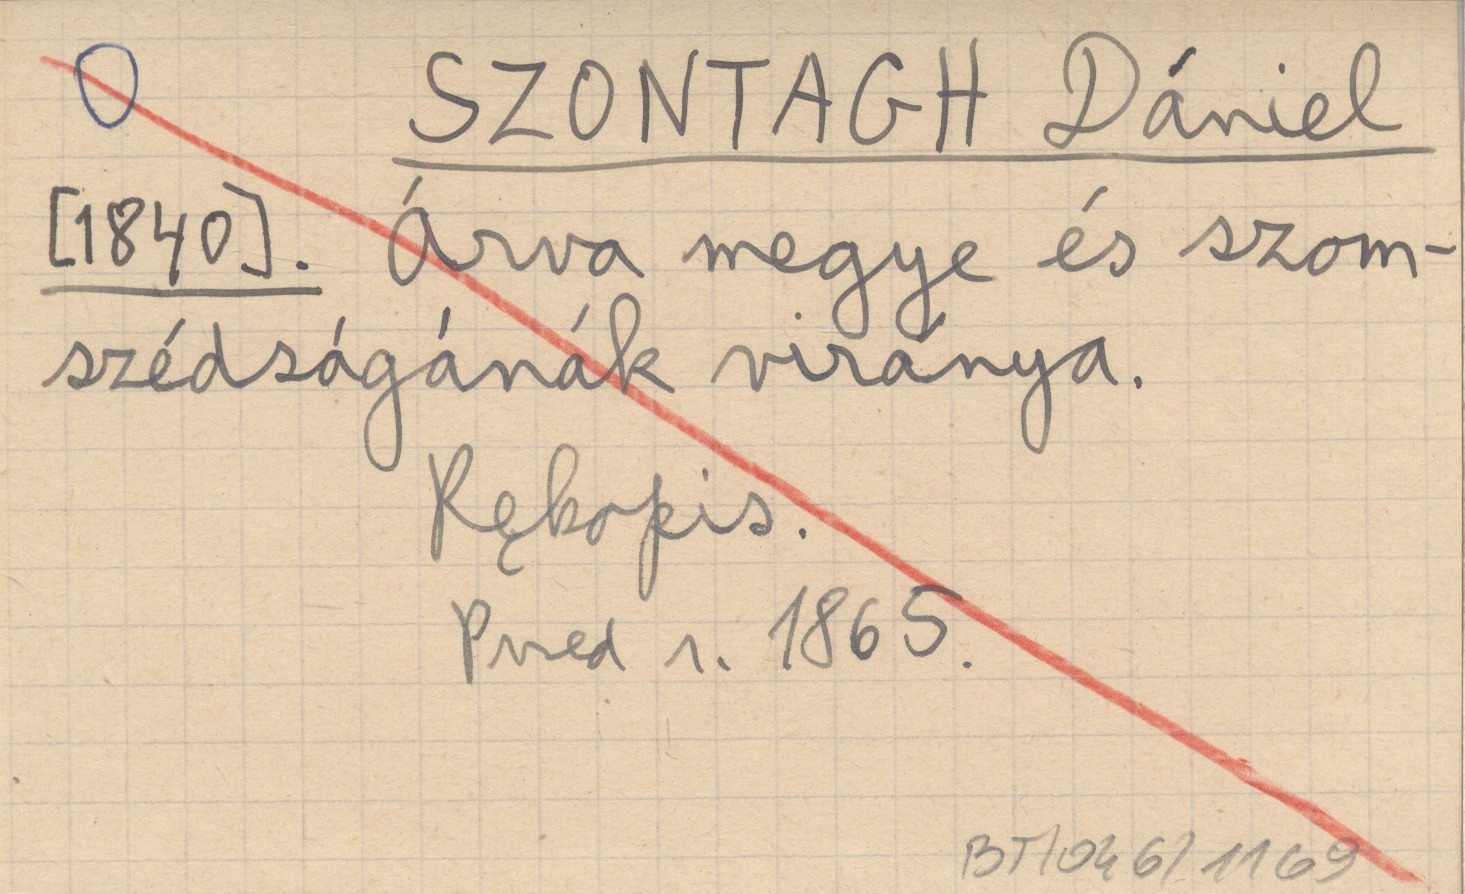 SZONTAGH Dániel
[1840]. Árva megye és szom-
szédságánák viránya.
Rękopis.
Pned r. 1865.
BT/046/1169